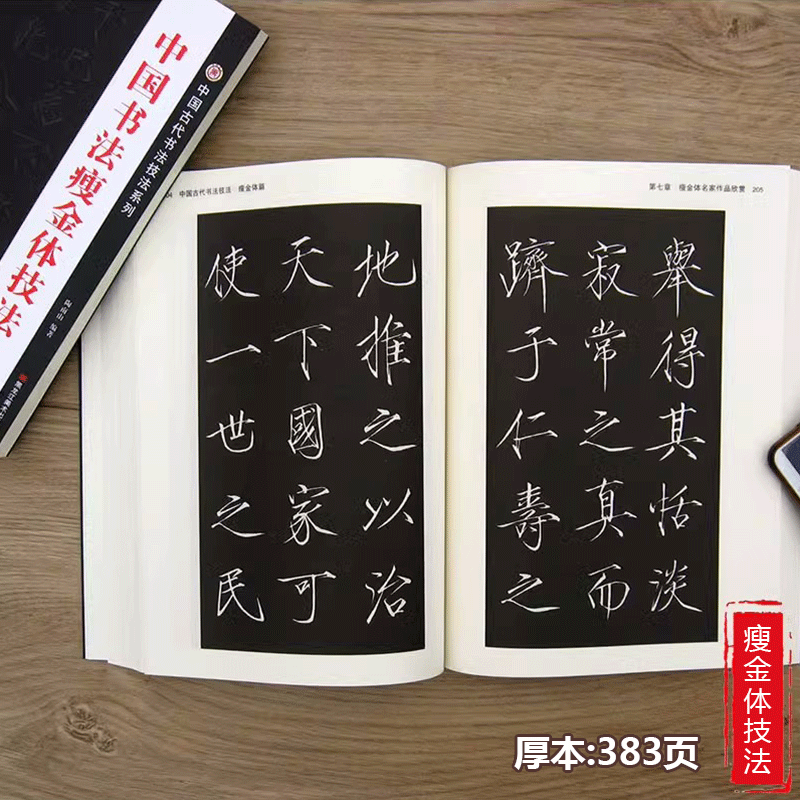 中国古代书法技法系列
中国书法瘦金体技法
编著
黑龙江美术
04 中国古代书法技法 瘦金体篇
地推之以治
天下國家可
使一世之民
第七章 瘦金体名家作品欣赏 205
舉得其恬淡
寂常之真而
躋于仁壽之
瘦金体技法
厚本:383页